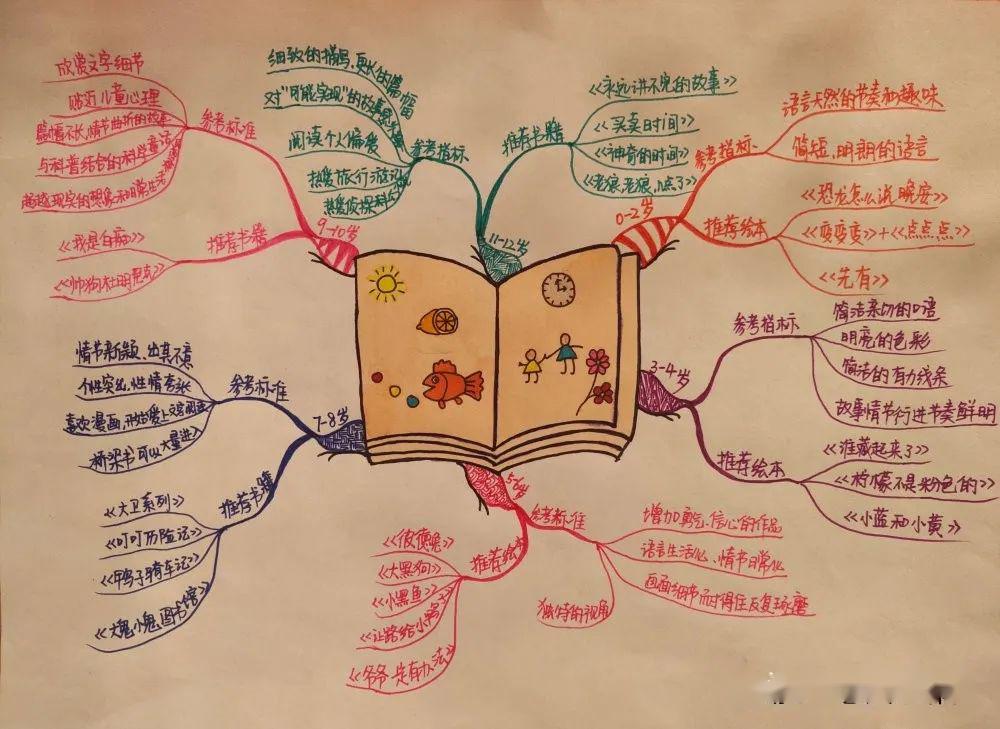 0-2岁
参考指标
语言天然的节奏和趣味
简短,明朗的语言
推荐绘本
《恐龙怎么说晚安》
《变变变》+《点点点》
《先有》
3-4岁
参考指标
简洁亲切的口语
明亮的色彩
简洁的有力线条
故事情节行进节奏鲜明
推荐绘本
《谁藏起来了》
《柠檬不是粉色的》
《小蓝和小黄》
5-6岁
参考标准
增加勇气、信心的作品
语言生活化、情节日常化
画面细节耐得住反复琢磨
独特的视角
推荐绘本
《彼德兔》
《大黑狗》
《小黑鱼》
《让路给小鸭子》
《爷爷一定有办法》
7-8岁
参考标准
情节新颖、出其不意
个性突出,性情夸张
喜欢漫画,开始爱上文字阅读
桥梁书可以大量进入
推荐书籍
《大卫系列》
《叮叮历险记》
《鸭子骑车记》
《大鬼小鬼图书馆》
9-10岁
参考标准
欣赏文字细节
贴近儿童心理
篇幅不长,情节曲折的故事
与科普结合的科学童话
超越现实的想象和日常生活
推荐书籍
《我是白痴》
《帅狗杜明尼克》
11-12岁
参考指标
细致的描写,更长的篇幅
对"可能实现"的故事感兴趣
阅读个人偏爱
热爱旅行游记
热爱侦探科幻
推荐书籍
《永远讲不完的故事》
《买卖时间》
《神奇的时间》
《老狼老狼,几点了》